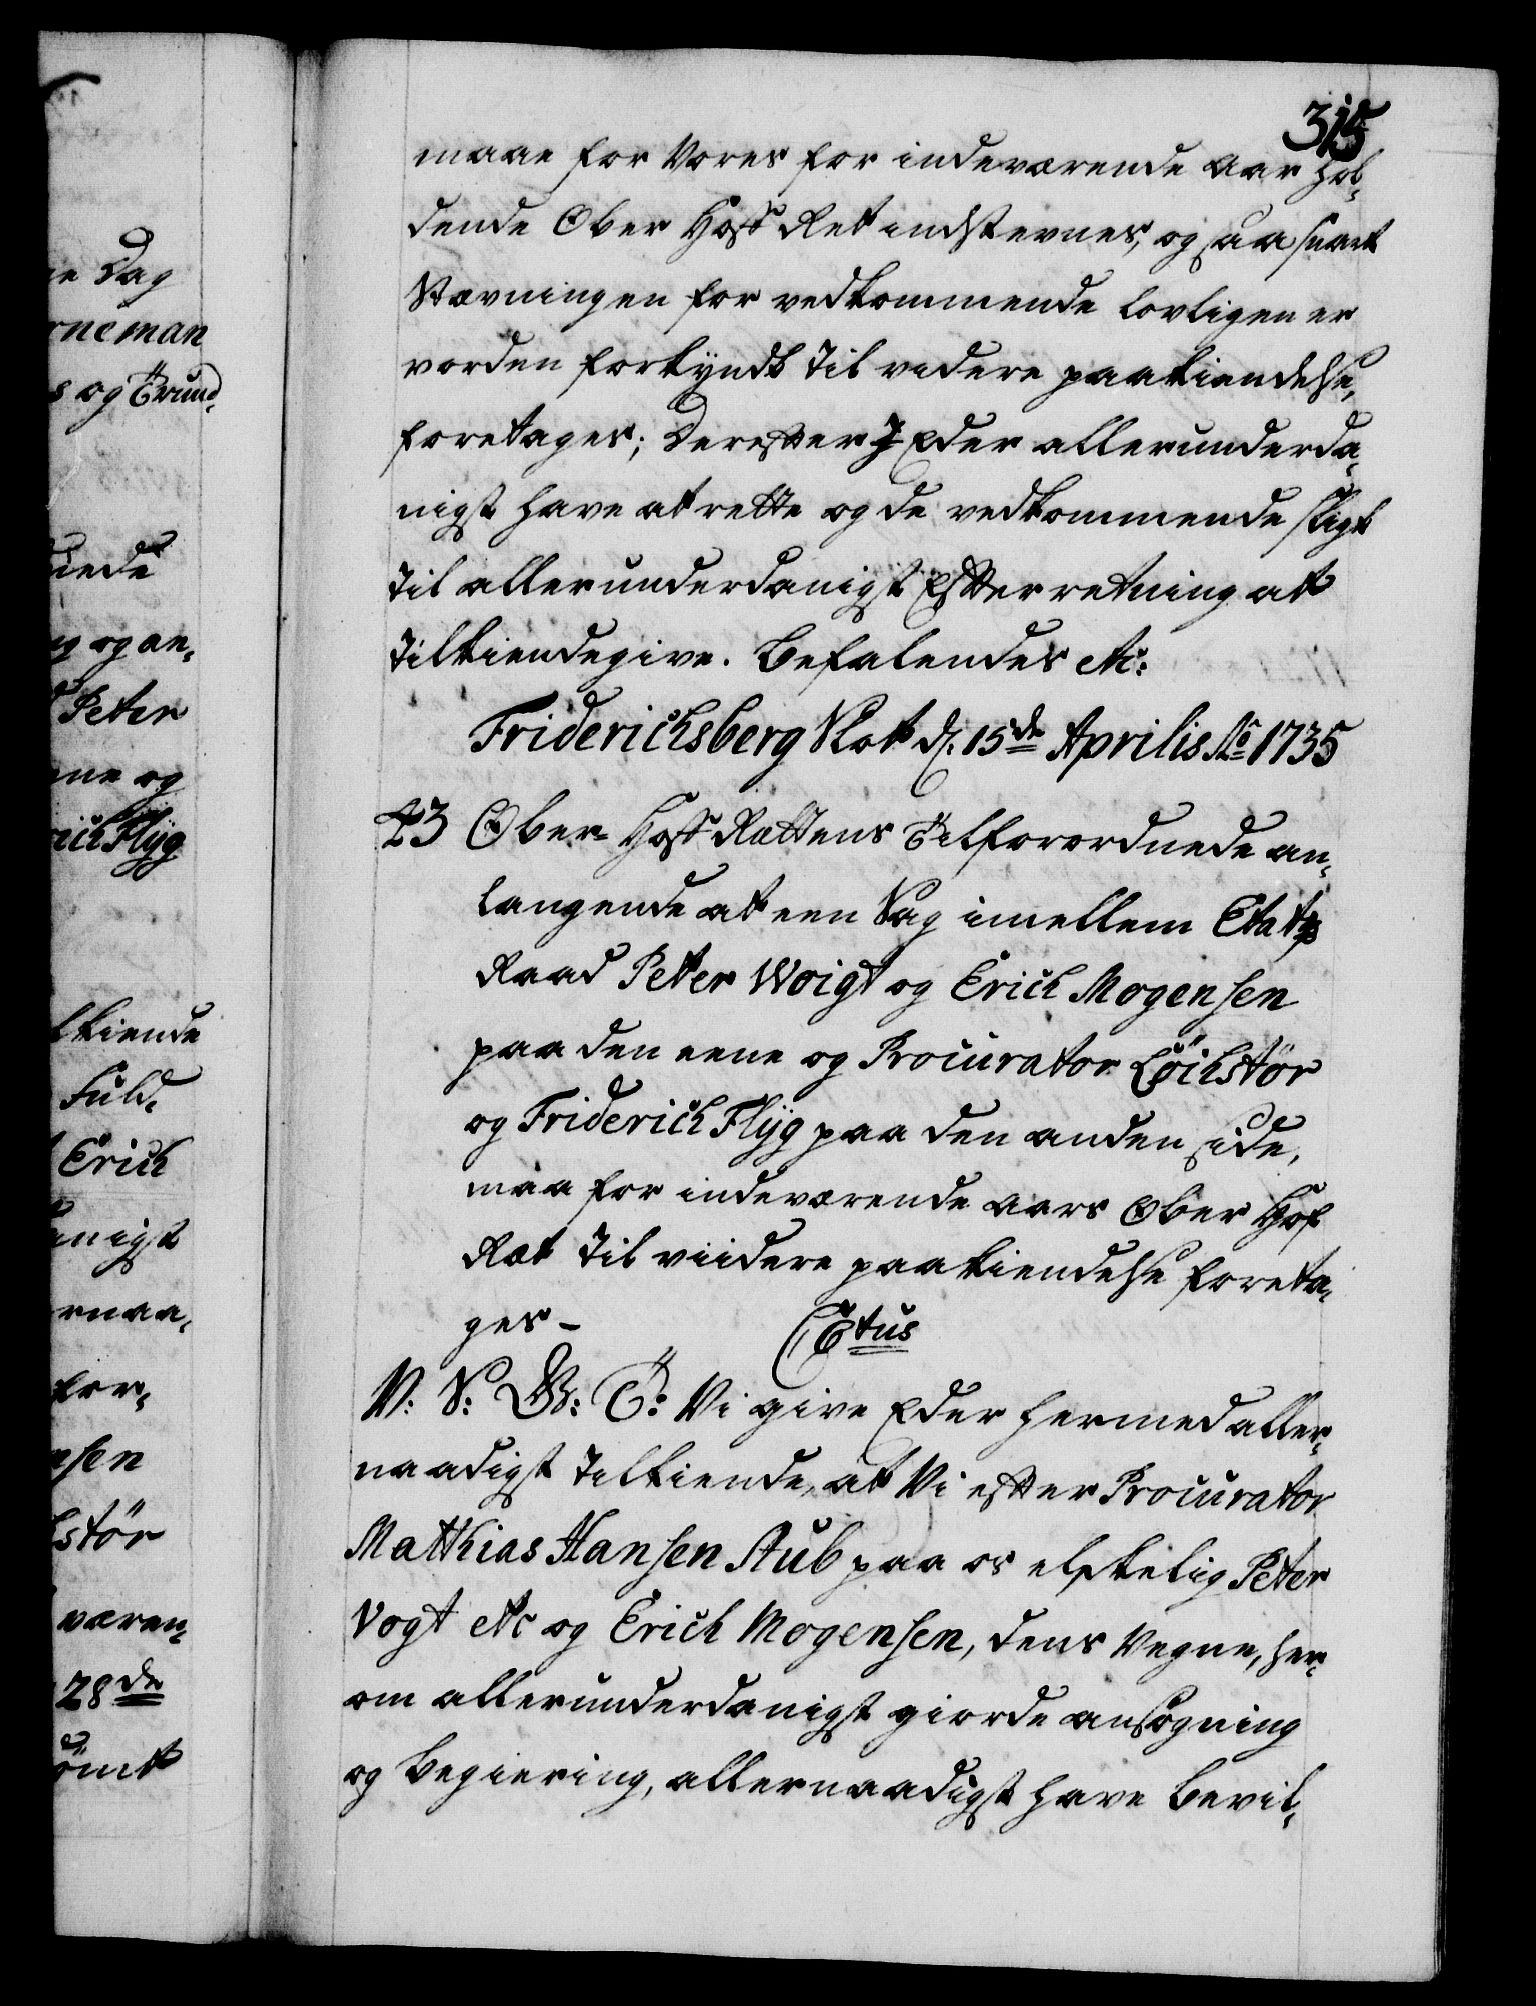 315
maae for Vores for indeværende Aar hol-
dende Ober Hoff Ret indstevnes, og saa snart
Stævningen for vedkommende lovligen er
vorden forkyndt til videre paakiendelse,
foretages; Derefter I Eder allerunderda-
nigst have at rette og de vedkommende sligt
til allerunderdanigst Efterretning at
tilkiendegive. Befalendes etc:
Friderichsberg Slot d. 15de Aprilis Ao 1735
43 Ober-Hoff Rettens Tilforordnede an-
langende at een Sag imellem Etats
Raad Peter Woigt og Erich Mogensen
paa den eene og Procurator Löchstör
og Friderich Flÿg paa den anden side,
maa for indeværende aars Ober Hof
Ræt til viidere paakiendelse foreta-
ges - CEtus
V: S: G: T: Vi give Eder hermed aller-
naadigst tilkiende, at Vi efter Procurator
Mathias Hansen Aub paa os elskelig Peter
Vogt etc og Erich Mogensen, dens Vegne, her-
om allerunderdanigst giorde ansøgning
og begiering, allernaadigst have bevil-
e Dag
rneman
s og Trund-
uede
og an-
Peter
ne og
rich Flÿg
lkiende
Fuld-
Erich
anigst
rnaa-
for-
nsen
stör
væren-
28de
ömt